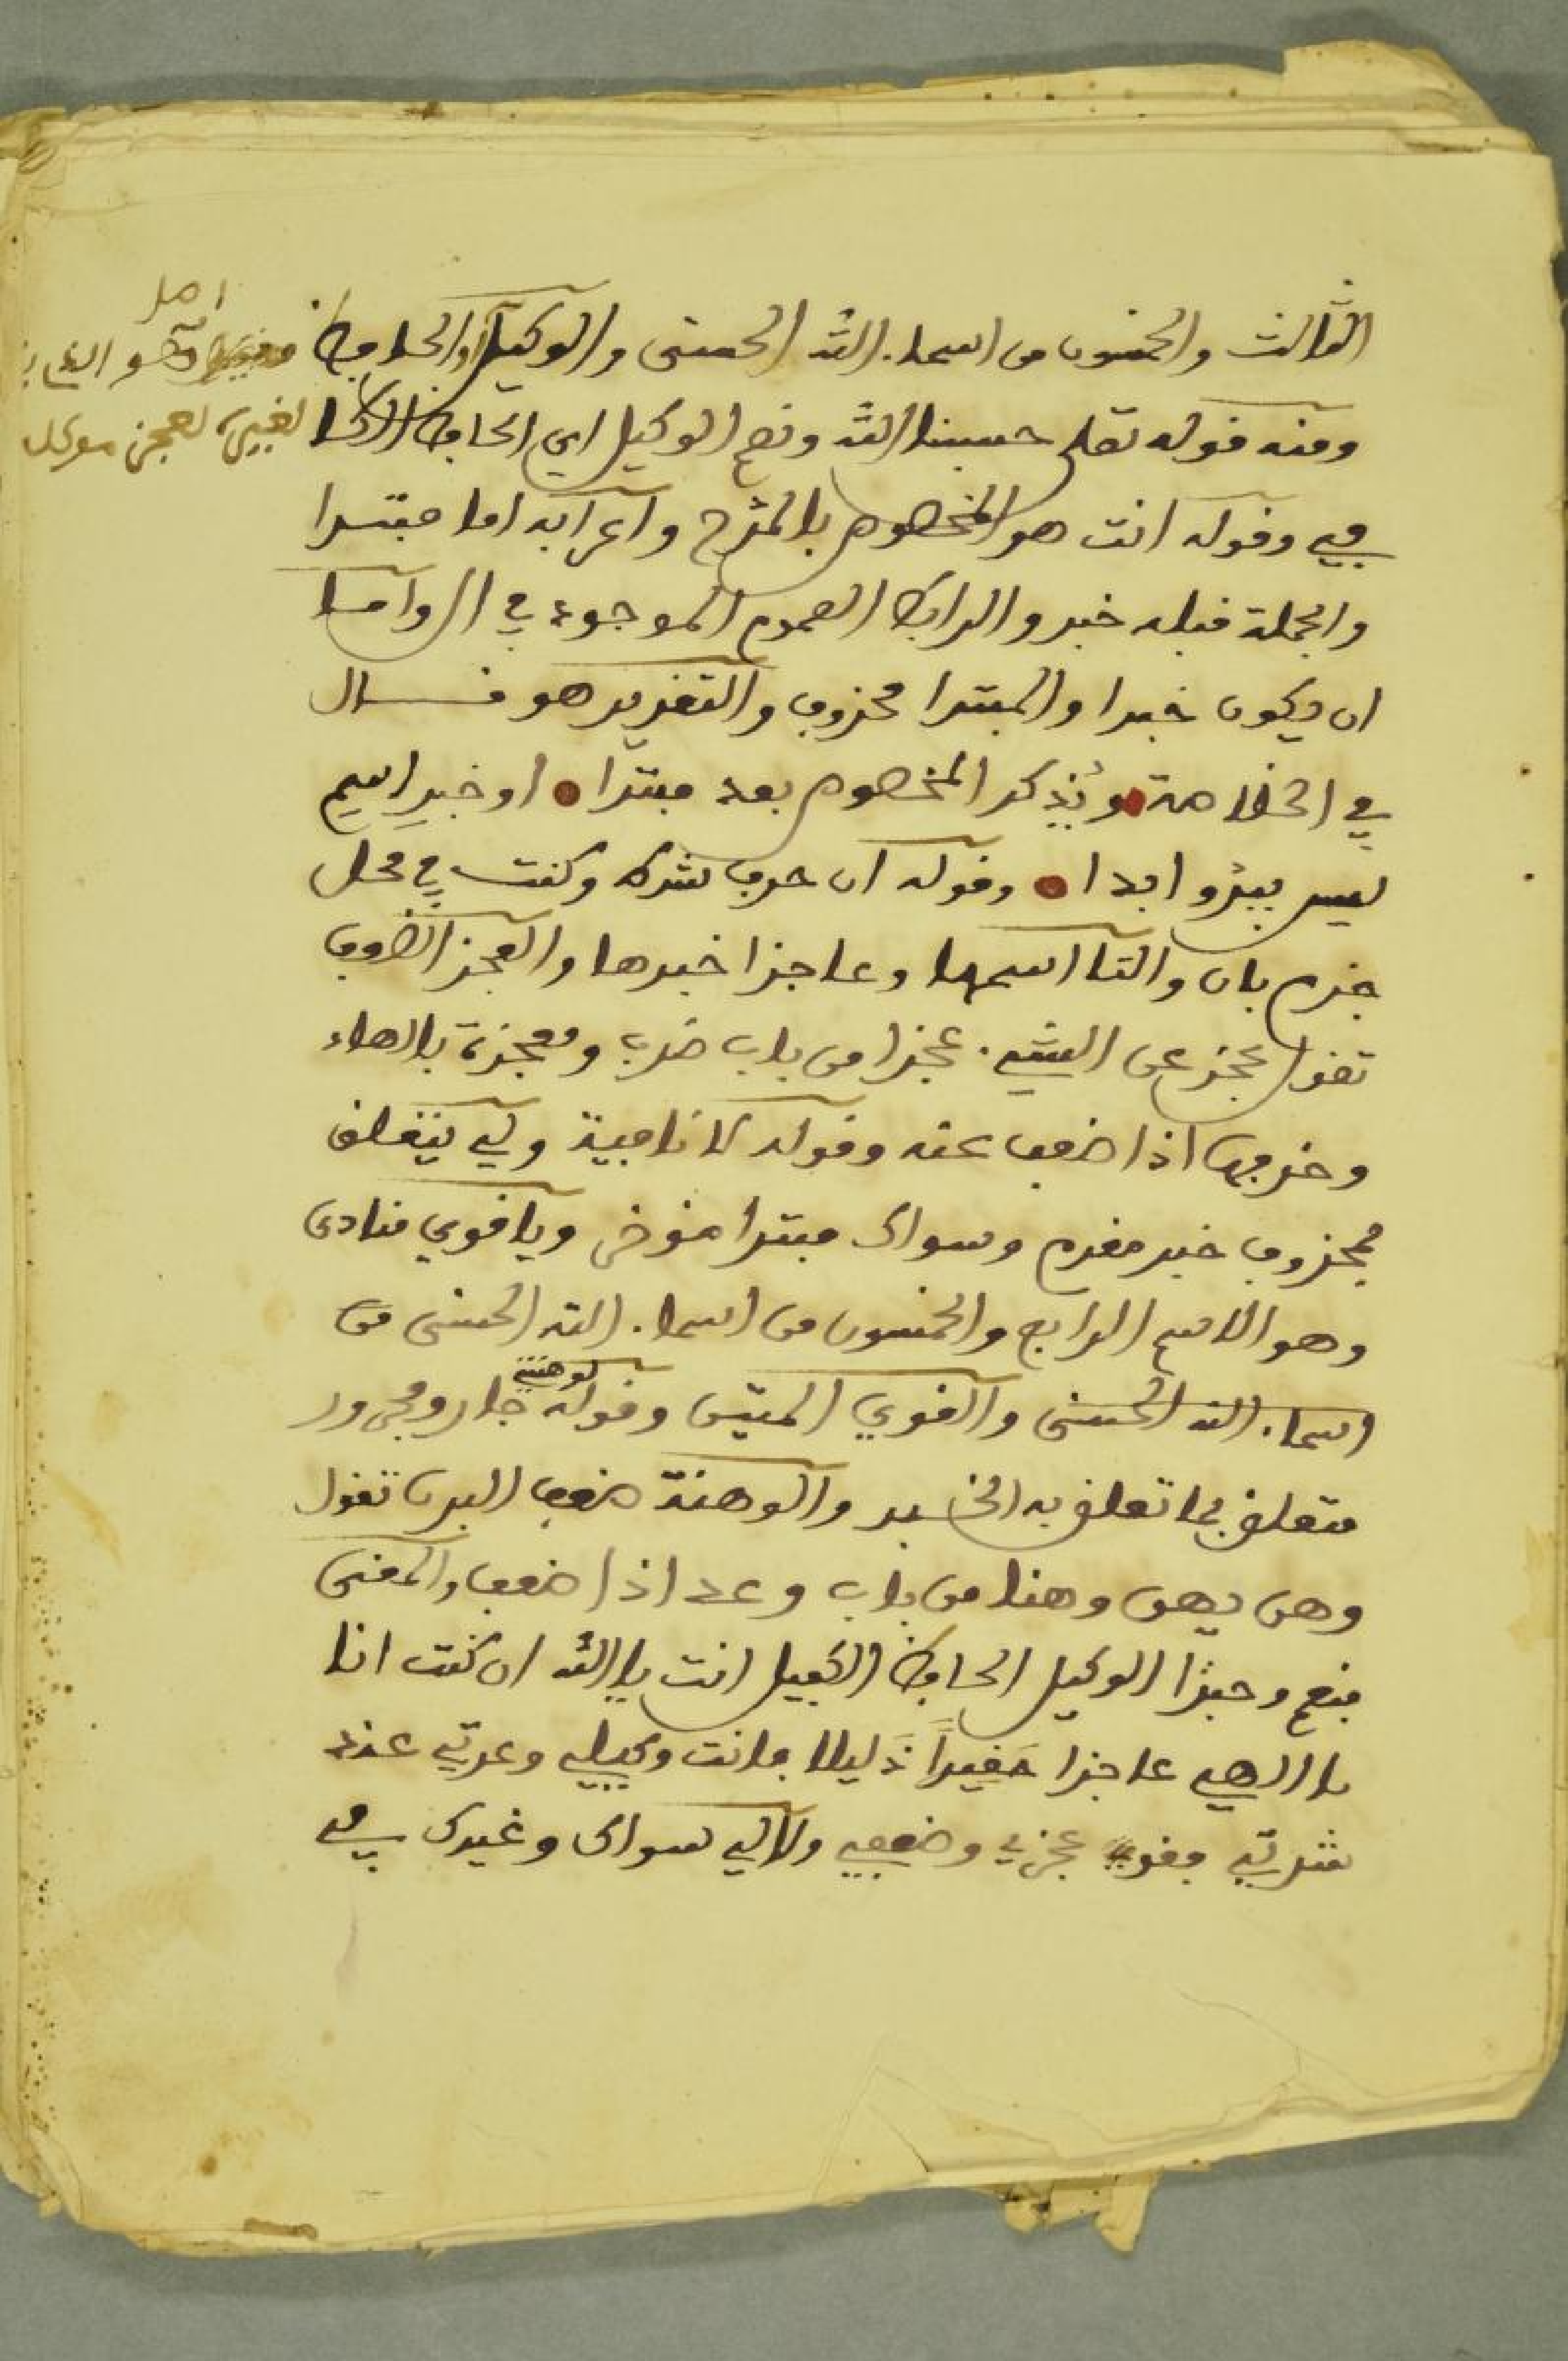 الثالث والخمسون من اسماء الله الحسنى والوكيل والحافظ
ومنه قوله تعلى حسبنا الله ونعم الوكيل اي الحافظ الكا
في وقوله انت هو المخصوص بالمدح واعرابه اما مبتدا
والجملة قبله خبر والرابط العموم الموجود في ال واما
ان يكون خبرا والمبتدا محذوف والتقدير هو قال
في الخلاصة ويذكر المخصوص بعد مبتدا او خبر اسم
ليس يبدو ابدا وقوله ان حرف شرط وكنت في محل
جزم بان والتا اسمها وعاجزا خبرها والعجز الضعف
تقول عجز عن الشيء عجزا من باب ضرب ومعجزة بالهاء
وحذفها اذا ضعف عنه وقوله لا نافية ولي يتعلق
بمحذوف خبر مقدم وسواك مبتدا مؤخر ويا قوي منادى
وهو الاسم الرابع والخمسون من اسماء الله الحسنى من
اسماء الله الحسنى والقوي المتين وقوله لوهنتي جار ومجرور
متعلق بما تعلق به الخبر والوهنة ضعف البدن تقول
وهن يهن وهنا من باب وعد اذا ضعف والمعنى
فنعم وحبذا الوكيل الحافظ الكفيل انت يا الله ان كنت انا
يا الهي عاجزا حقيرا ذليلا فانت وكيلي وعدتي عند
شدتي فقو عجزي وضعفي ولا لي سواك وغيرك في
اصل
لغيره لعجز موكل